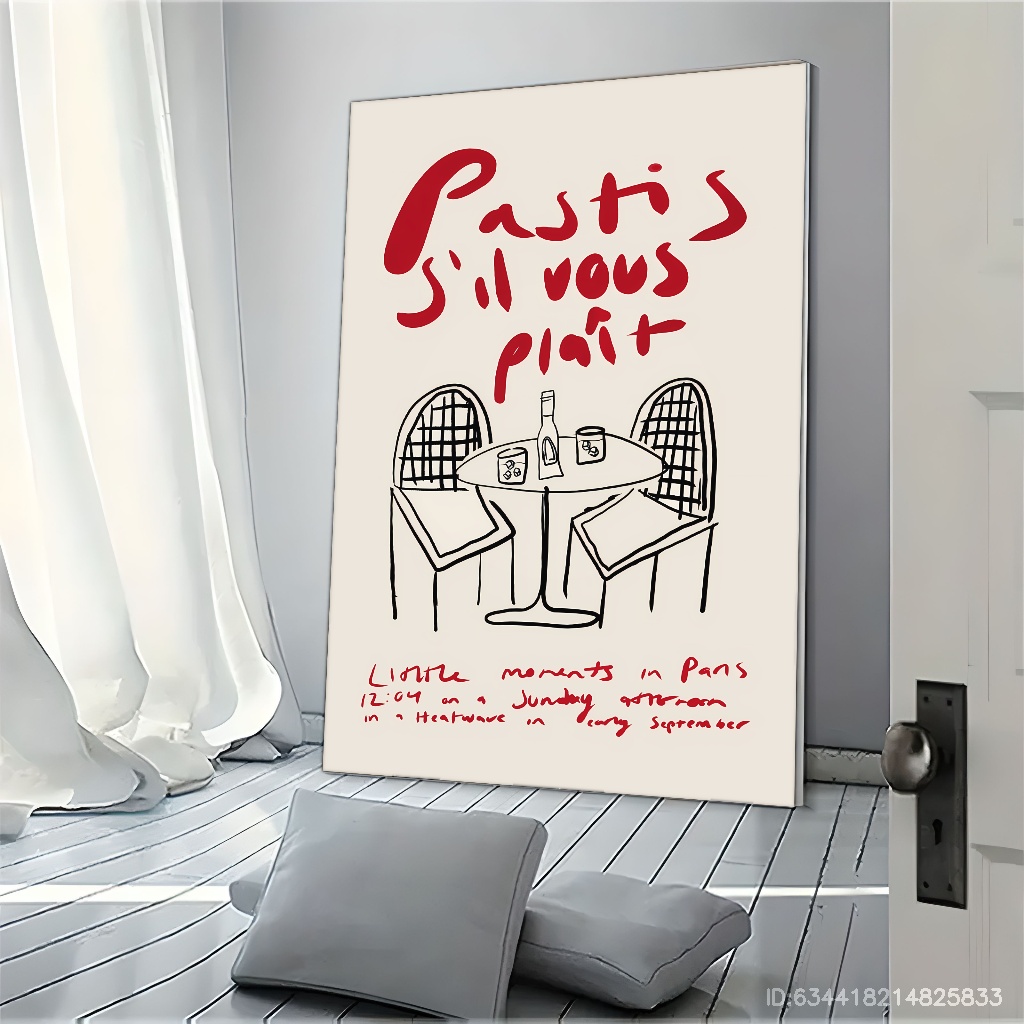 Pastis
s'il vous
plaît
Little moments in Paris
12:04 on a Sunday afternoon
in a Heatwave in early September
ID:634418214825833